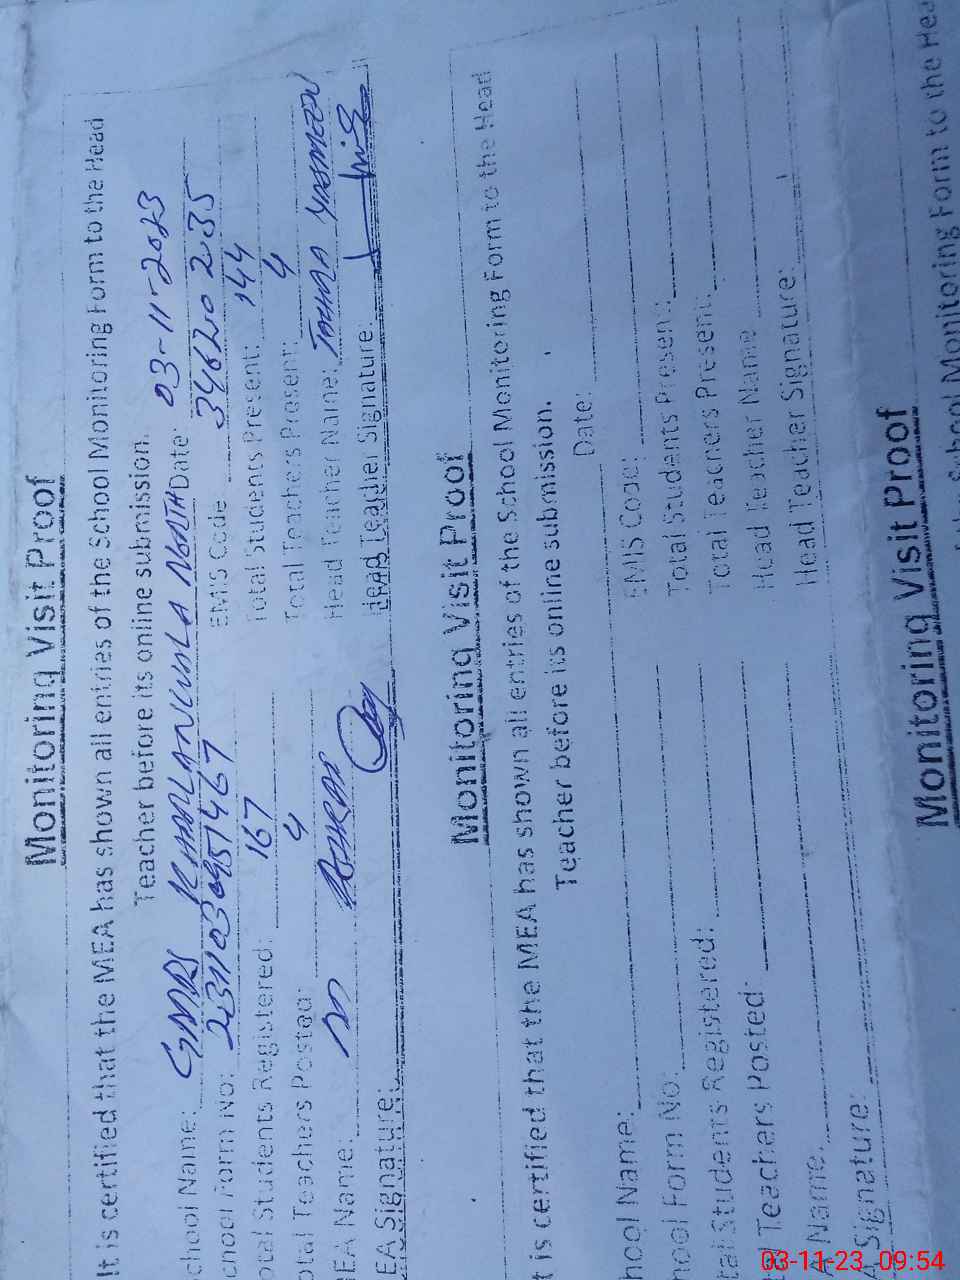 Monitoring Visit Proof
It is certified that the MEA has shown all entries of the School Monitoring Form to the Head
Teacher before its online submission.
chool Name: GMPS NOATH Date: 03-11-2023
chool Form No: EMIS Code 34620235
otal Students Registered: 167 Total Students Present: 144
otal Teachers Posted: 4 Total Teachers Present: 4
EA Name: M Head Teacher Name: YASMEEN
EA Signature: Head Teacher Signature:
Monitoring Visit Proof
t is certified that the MEA has shown all entries of the School Monitoring Form to the Head
Teacher before its online submission.
Date:
hool Name: EMIS Code:
hool Form No: Total Students Present:
tal Students Registered: Total Teachers Present:
Teachers Posted: Head Teacher Name
A Name Head Teacher Signature:
A Signature:
Monitoring Visit Proof
School Monitoring Form to the Hea
03-11-23 09:54